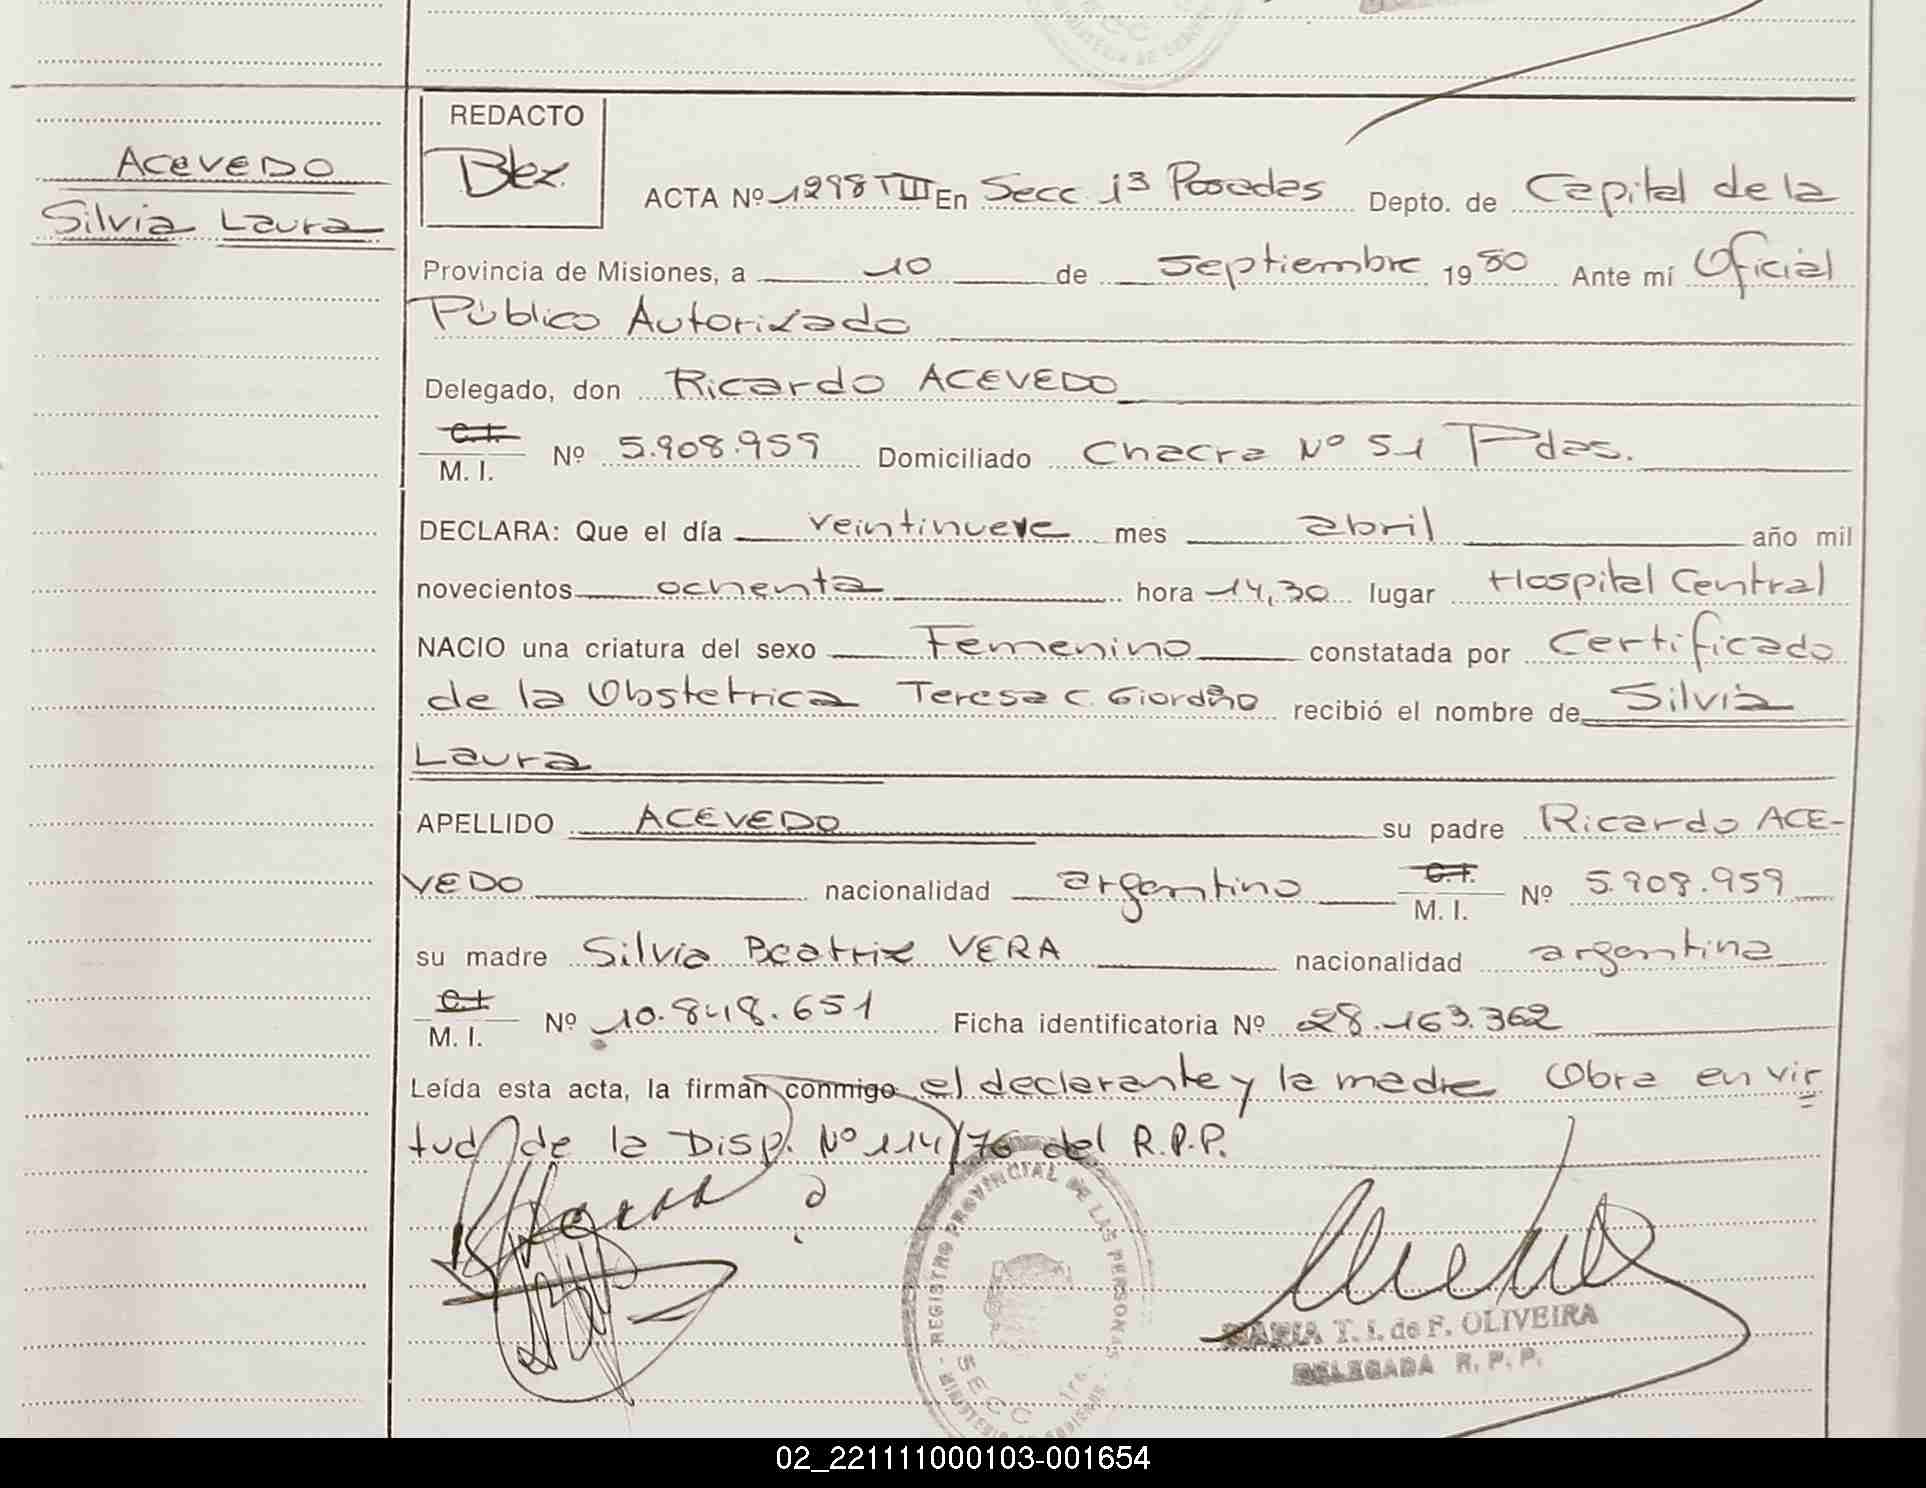 REDACTO
Blez.
ACEVEDO
Silvia Laura
ACTA Nº 1298 TIII En Secc 1ª Posadas Depto. de Capital de la
Provincia de Misiones, a 10 de septiembre 1980 Ante mí Oficial
Público Autorizado
Delegado, don Ricardo ACEVEDO
C.I.
M. I. Nº 5.908.959 Domiciliado Chacra Nº 51 Pdas.
DECLARA: Que el día veintinueve mes abril año mil
novecientos ochenta hora 14,30 lugar Hospital Central
NACIO una criatura del sexo Femenino constatada por Certificado
de la Obstetrica Teresa C. Giordano recibió el nombre de Silvia
Laura
APELLIDO ACEVEDO su padre Ricardo ACE-
VEDO nacionalidad argentino C.I. M. I. Nº 5.908.959
su madre Silvia Beatriz VERA nacionalidad argentina
C.I.
M. I. Nº 10.848.651 Ficha identificatoria Nº 28.163.362
Leída esta acta, la firman conmigo el declarante y la madre Obra en vir
tud de la Disp. Nº 114/76 del R.P.P.
REGISTRO PROVINCIAL DE LAS PERSONAS
SECC. 1ra.
MARIA T. I. de F. OLIVEIRA
DELEGADA R. P. P.
02_221111000103-001654